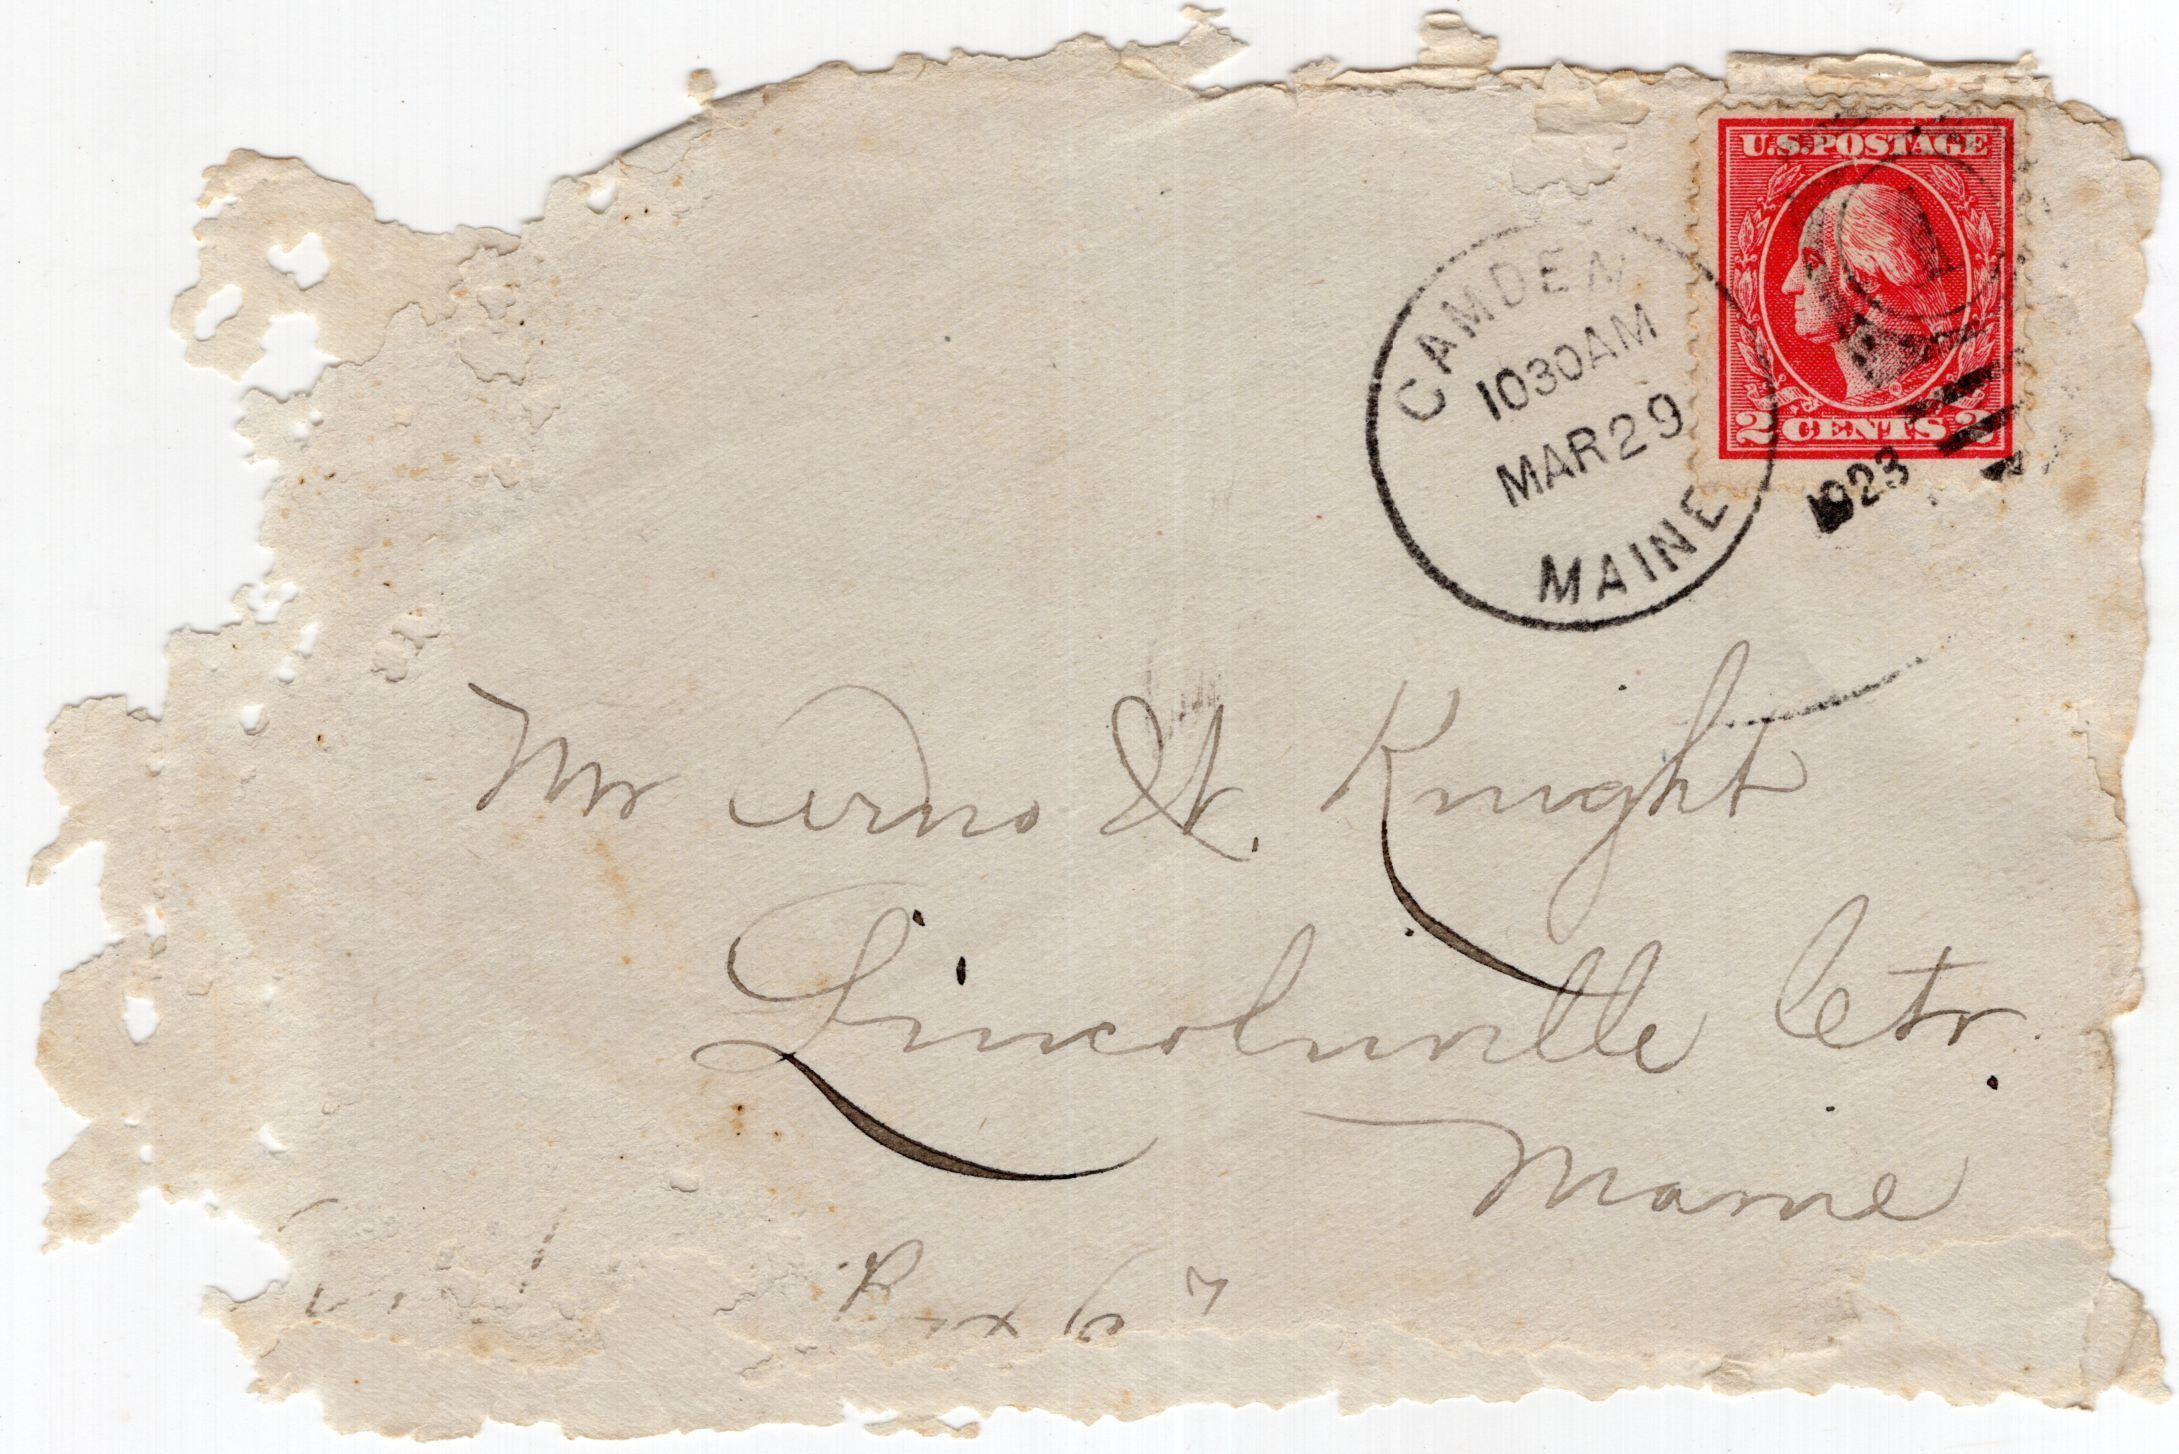 U.S. POSTAGE
2 CENTS 2
CAMDEN
1030AM
MAR 29
MAINE
1923
Mr Arno W. Knight
Lincolnville Ctr.
Maine